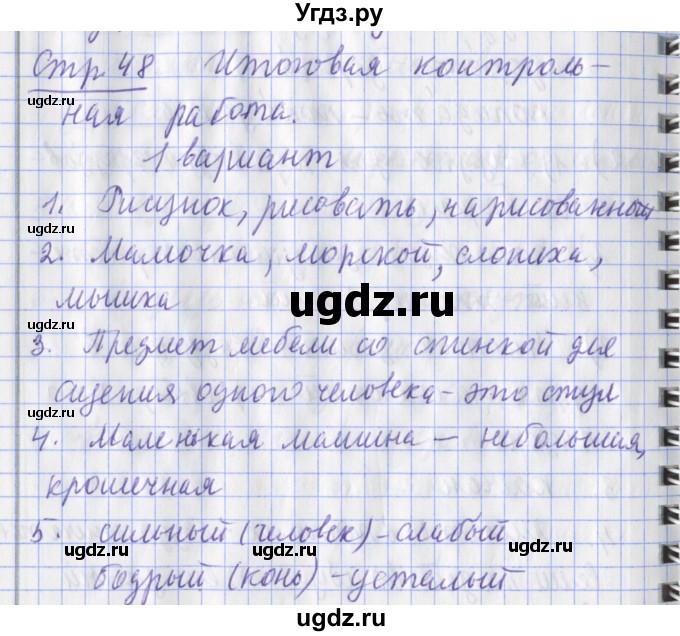 Угдз.ру
Стр 48 Итоговая контроль-
ная работа.
1 вариант
1. Рисунок, рисовать, нарисованный
2. Мамочка, морской, слониха,
мышка
3. Предмет мебели со спинкой для
сидения одного человека - это стул
4. Маленькая машина - небольшая,
крошечная
5. сильный (человек) - слабый
бодрый (конь) - усталый
ugdz.ru
ugdz.ru
ugdz.ru
ugdz.ru
ugdz.ru
ugdz.ru
ugdz.ru
ugdz.ru
ugdz.ru
ugdz.ru
ugdz.ru